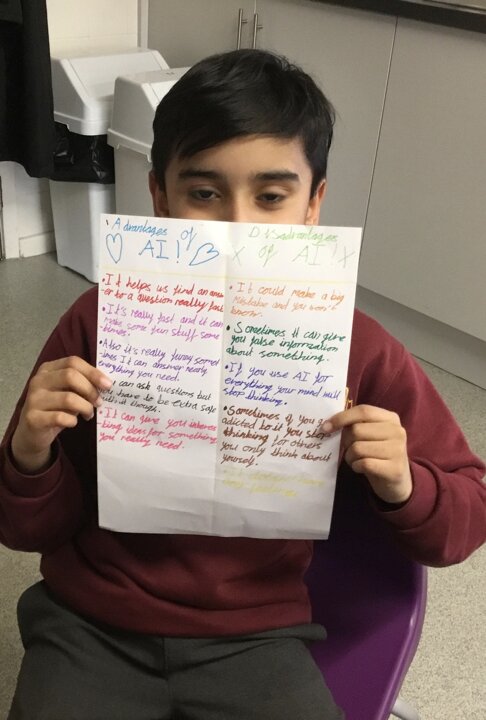 Advantages of
AI!
• It helps us find an answ
-er to a question really fast
• It's really fast and it can
make some fun stuff some
-times.
• Also it's really funny somet
-imes It can answer nearly
everything you need.
I can ask questions but
you have to be extra safe
with it though.
• It can give you interes
-ting ideas for something
you really need.
Disadvantages
X of AI! X
• It could make a big
mistake and you won't
know.
• Sometimes it can give
you false information
about something.
• If you use AI for
everything your mind will
stop thinking.
• Sometimes if you
adicted to it you stop
thinking for others
you only think about
yourself.
• It doesn't have